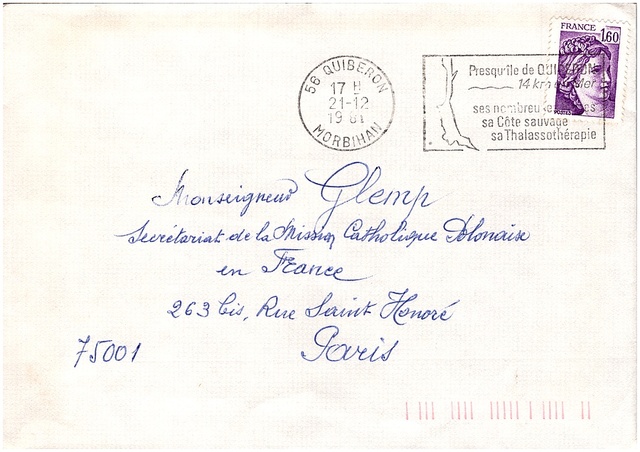 FRANCE 1,60
56 QUIBERON
17 H
21-12
1981
MORBIHAN
Presqu'île de QUIBERON
14 km
ses
sa Côte sauvage
sa Thalassothérapie
Monseigneur Glemp
Secrétariat de la Mission Catholique Polonaise
en France
263 bis, Rue Saint Honoré
75001 Paris